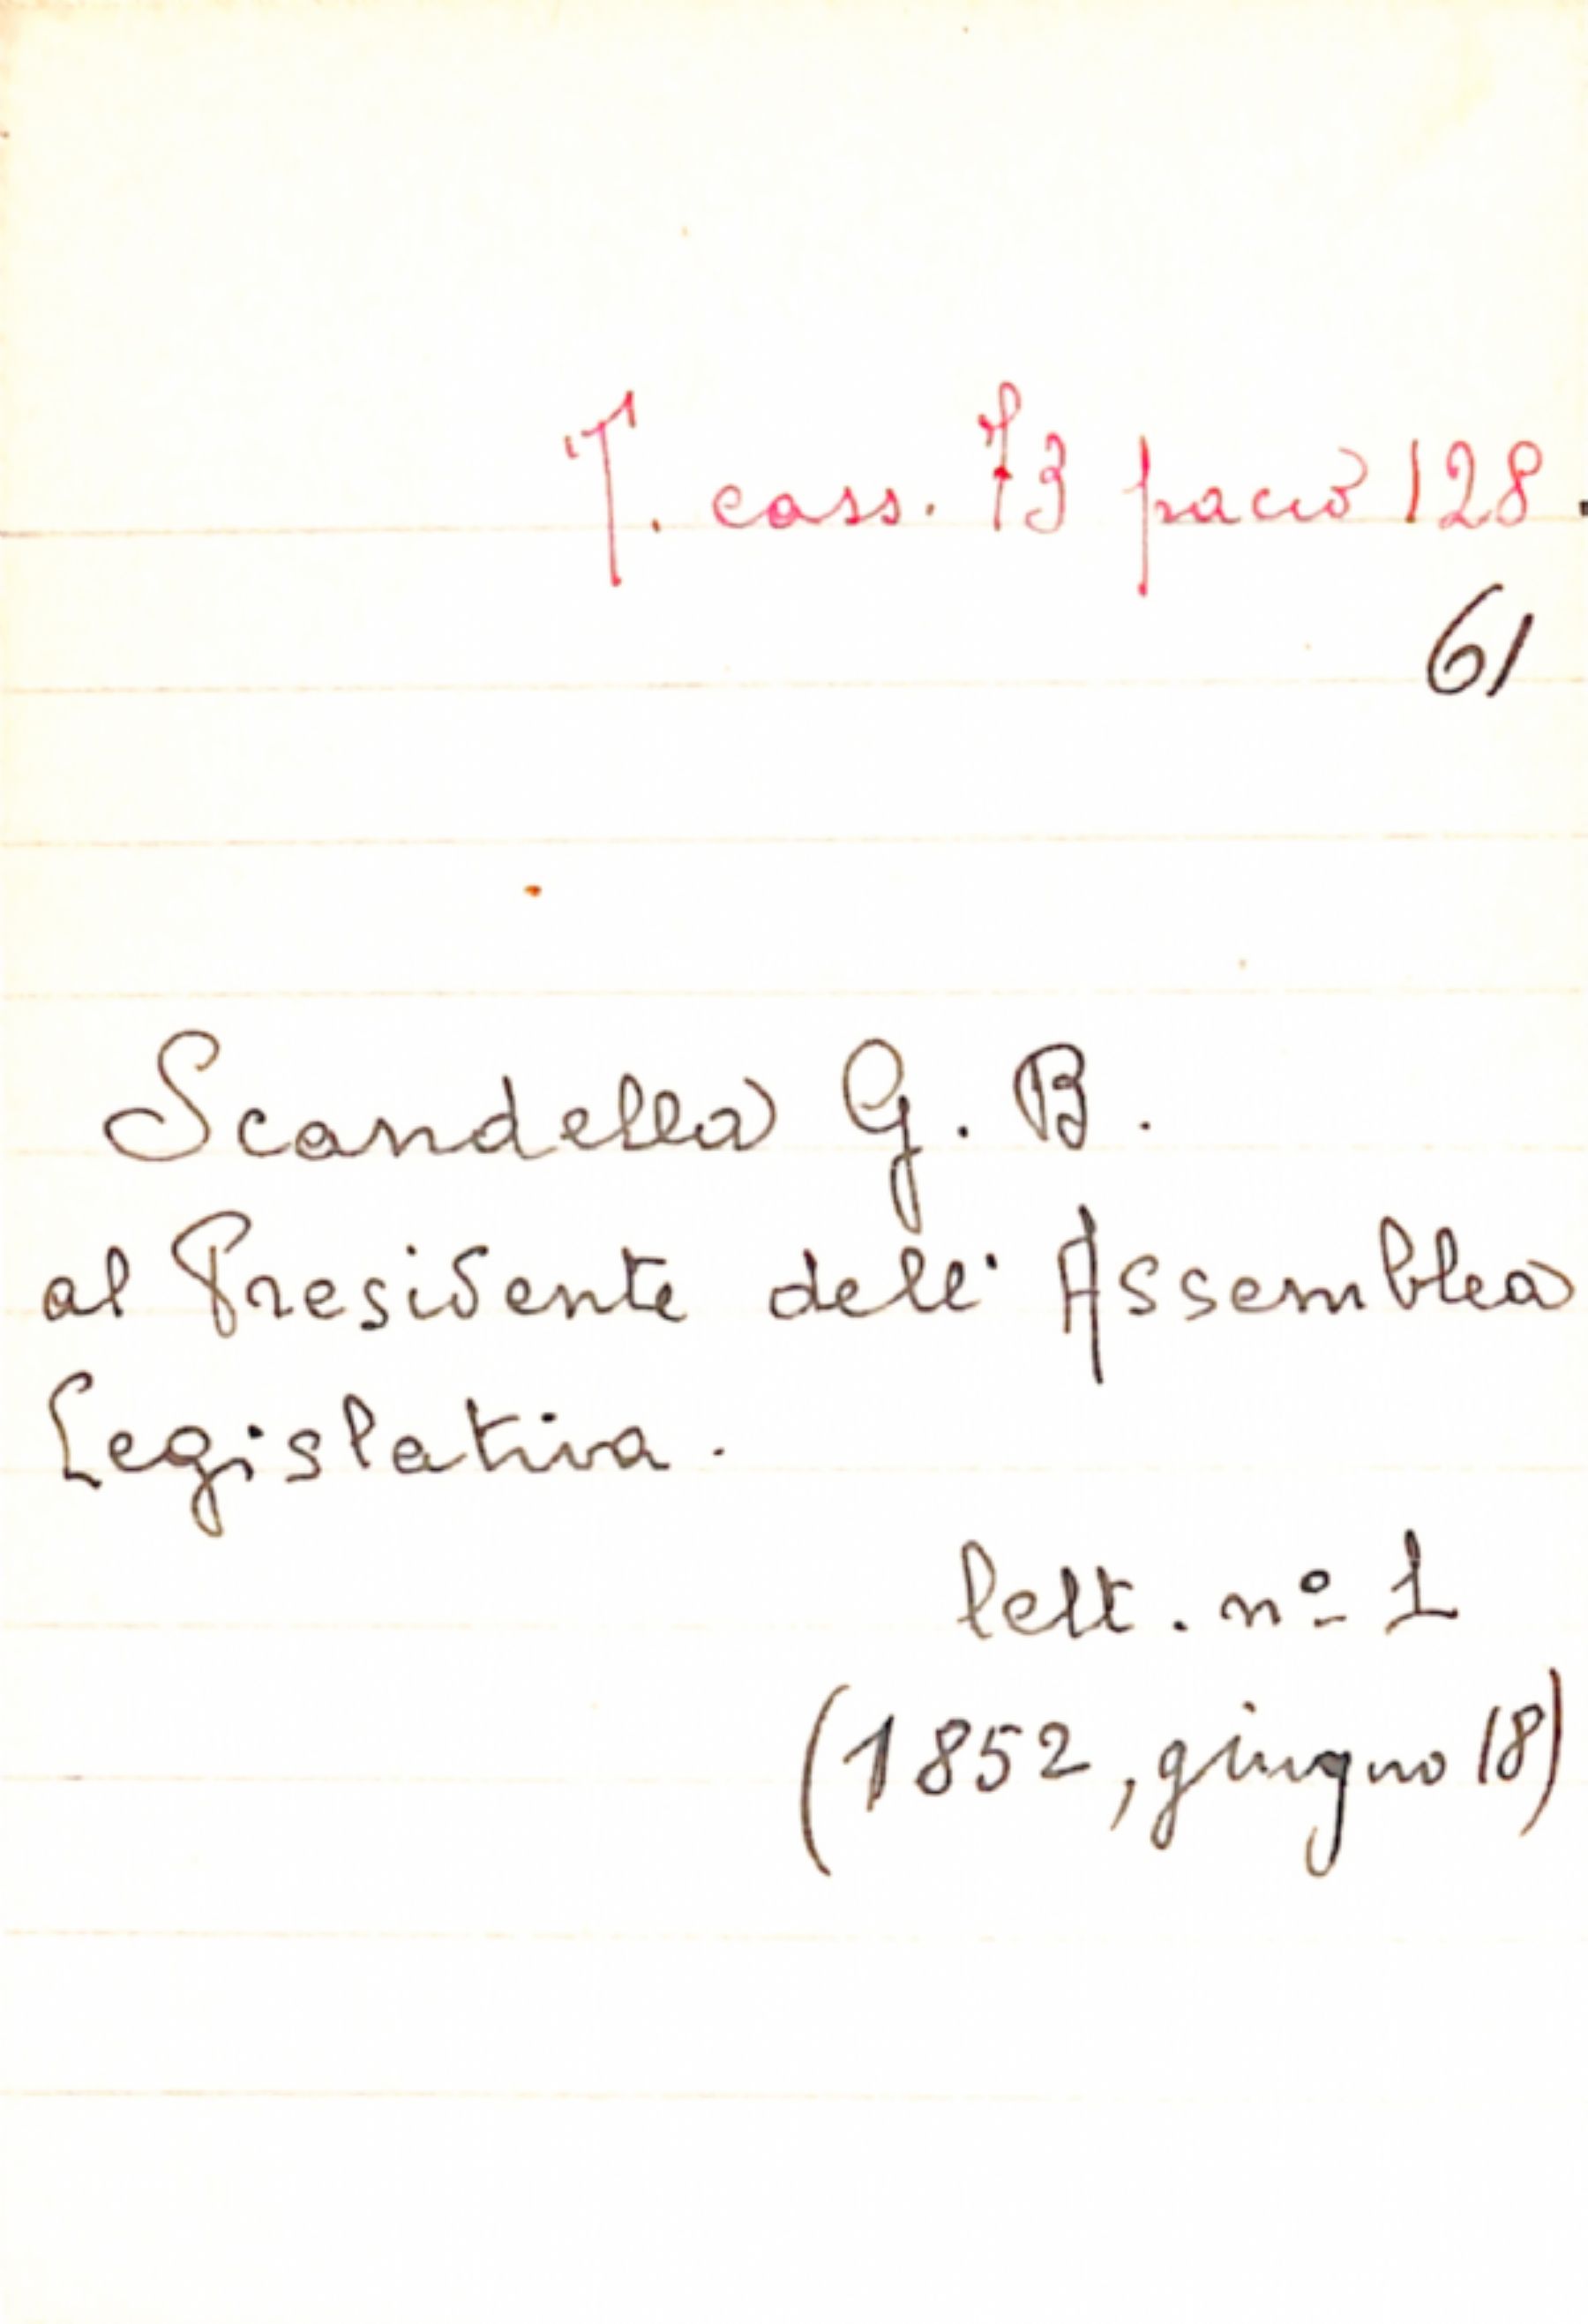 T. cass. 73 paccò 128.
61
Scandella G. B.
al Presidente dell' Assemblea
Legislativa.
lett. nº 1
(1852, giugno 18)